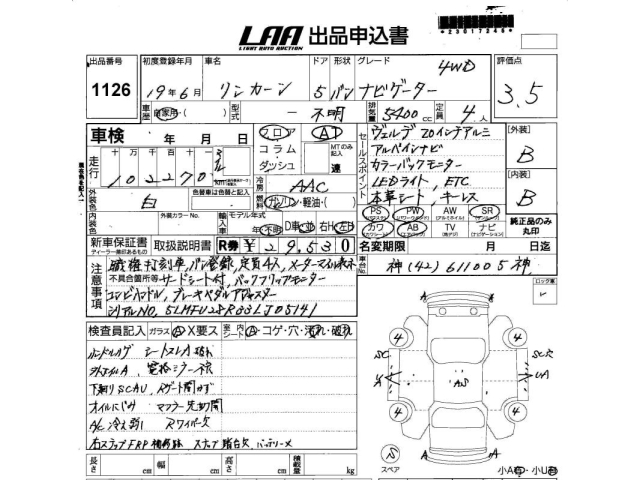 LAA 出品申込書
LIGHT AUTO AUCTION
*23017246*
出品番号 初度登録年月 車名 ドア 形状 グレード 評価点
1126 19年6月 リンカーン 5 バン ナビゲーター 4WD 3.5
車歴 自家用 型式 — 不明 排気量 5400cc 定員 4人
車検 年 月 日
走行 十万 万 千 百 十
102270
フロア AT
コラム MTのみ記入
ダッシュ 速
セールスポイント
ヴェルデ20インチアルミ
アルパインナビ
カラーバックモニター
LEDライト, ETC
本革シート, キーレス
[外装] B
[内装] B
冷房 AAC
燃料 ガソリン・軽油・( )
外装色 白 色替車は色替と記入
内装色 外装カラーNo. 輸入車 モデル年式 年不明 D車・並 右H・左H
PS PW AW SR
カワ AB TV ナビ
純正品のみ丸印
新車保証書 取扱説明書 R券 ¥ 29530 名変期限 月 日迄
ディーラー印があるもの
車台No. 神(42)611005神
注意事項
職権打刻車, バン登録, 定員4人, メーターマイル表示
不具合箇所等 サードシート付, バックフリップモニター
コンビハンドル, ブレーキペダルアジャスター
シリアルNO, 5LMFU28R33LJ05141
検査員記入 ガラスAX要ス 室内シートA・コゲ・穴・汚れ・破れ
ハンドルハゲ シートスレA 破れ
下廻りSCAU, Rゲート開かず
オイルにじみ
A/C冷え弱い Rワイパー欠
右ステップFRP
ロック車
A A
4 4
SC SC穴
AS UA
4 4
A A
S
スペア
長さ cm 幅 cm 高さ cm 積載量 kg 小A・小U